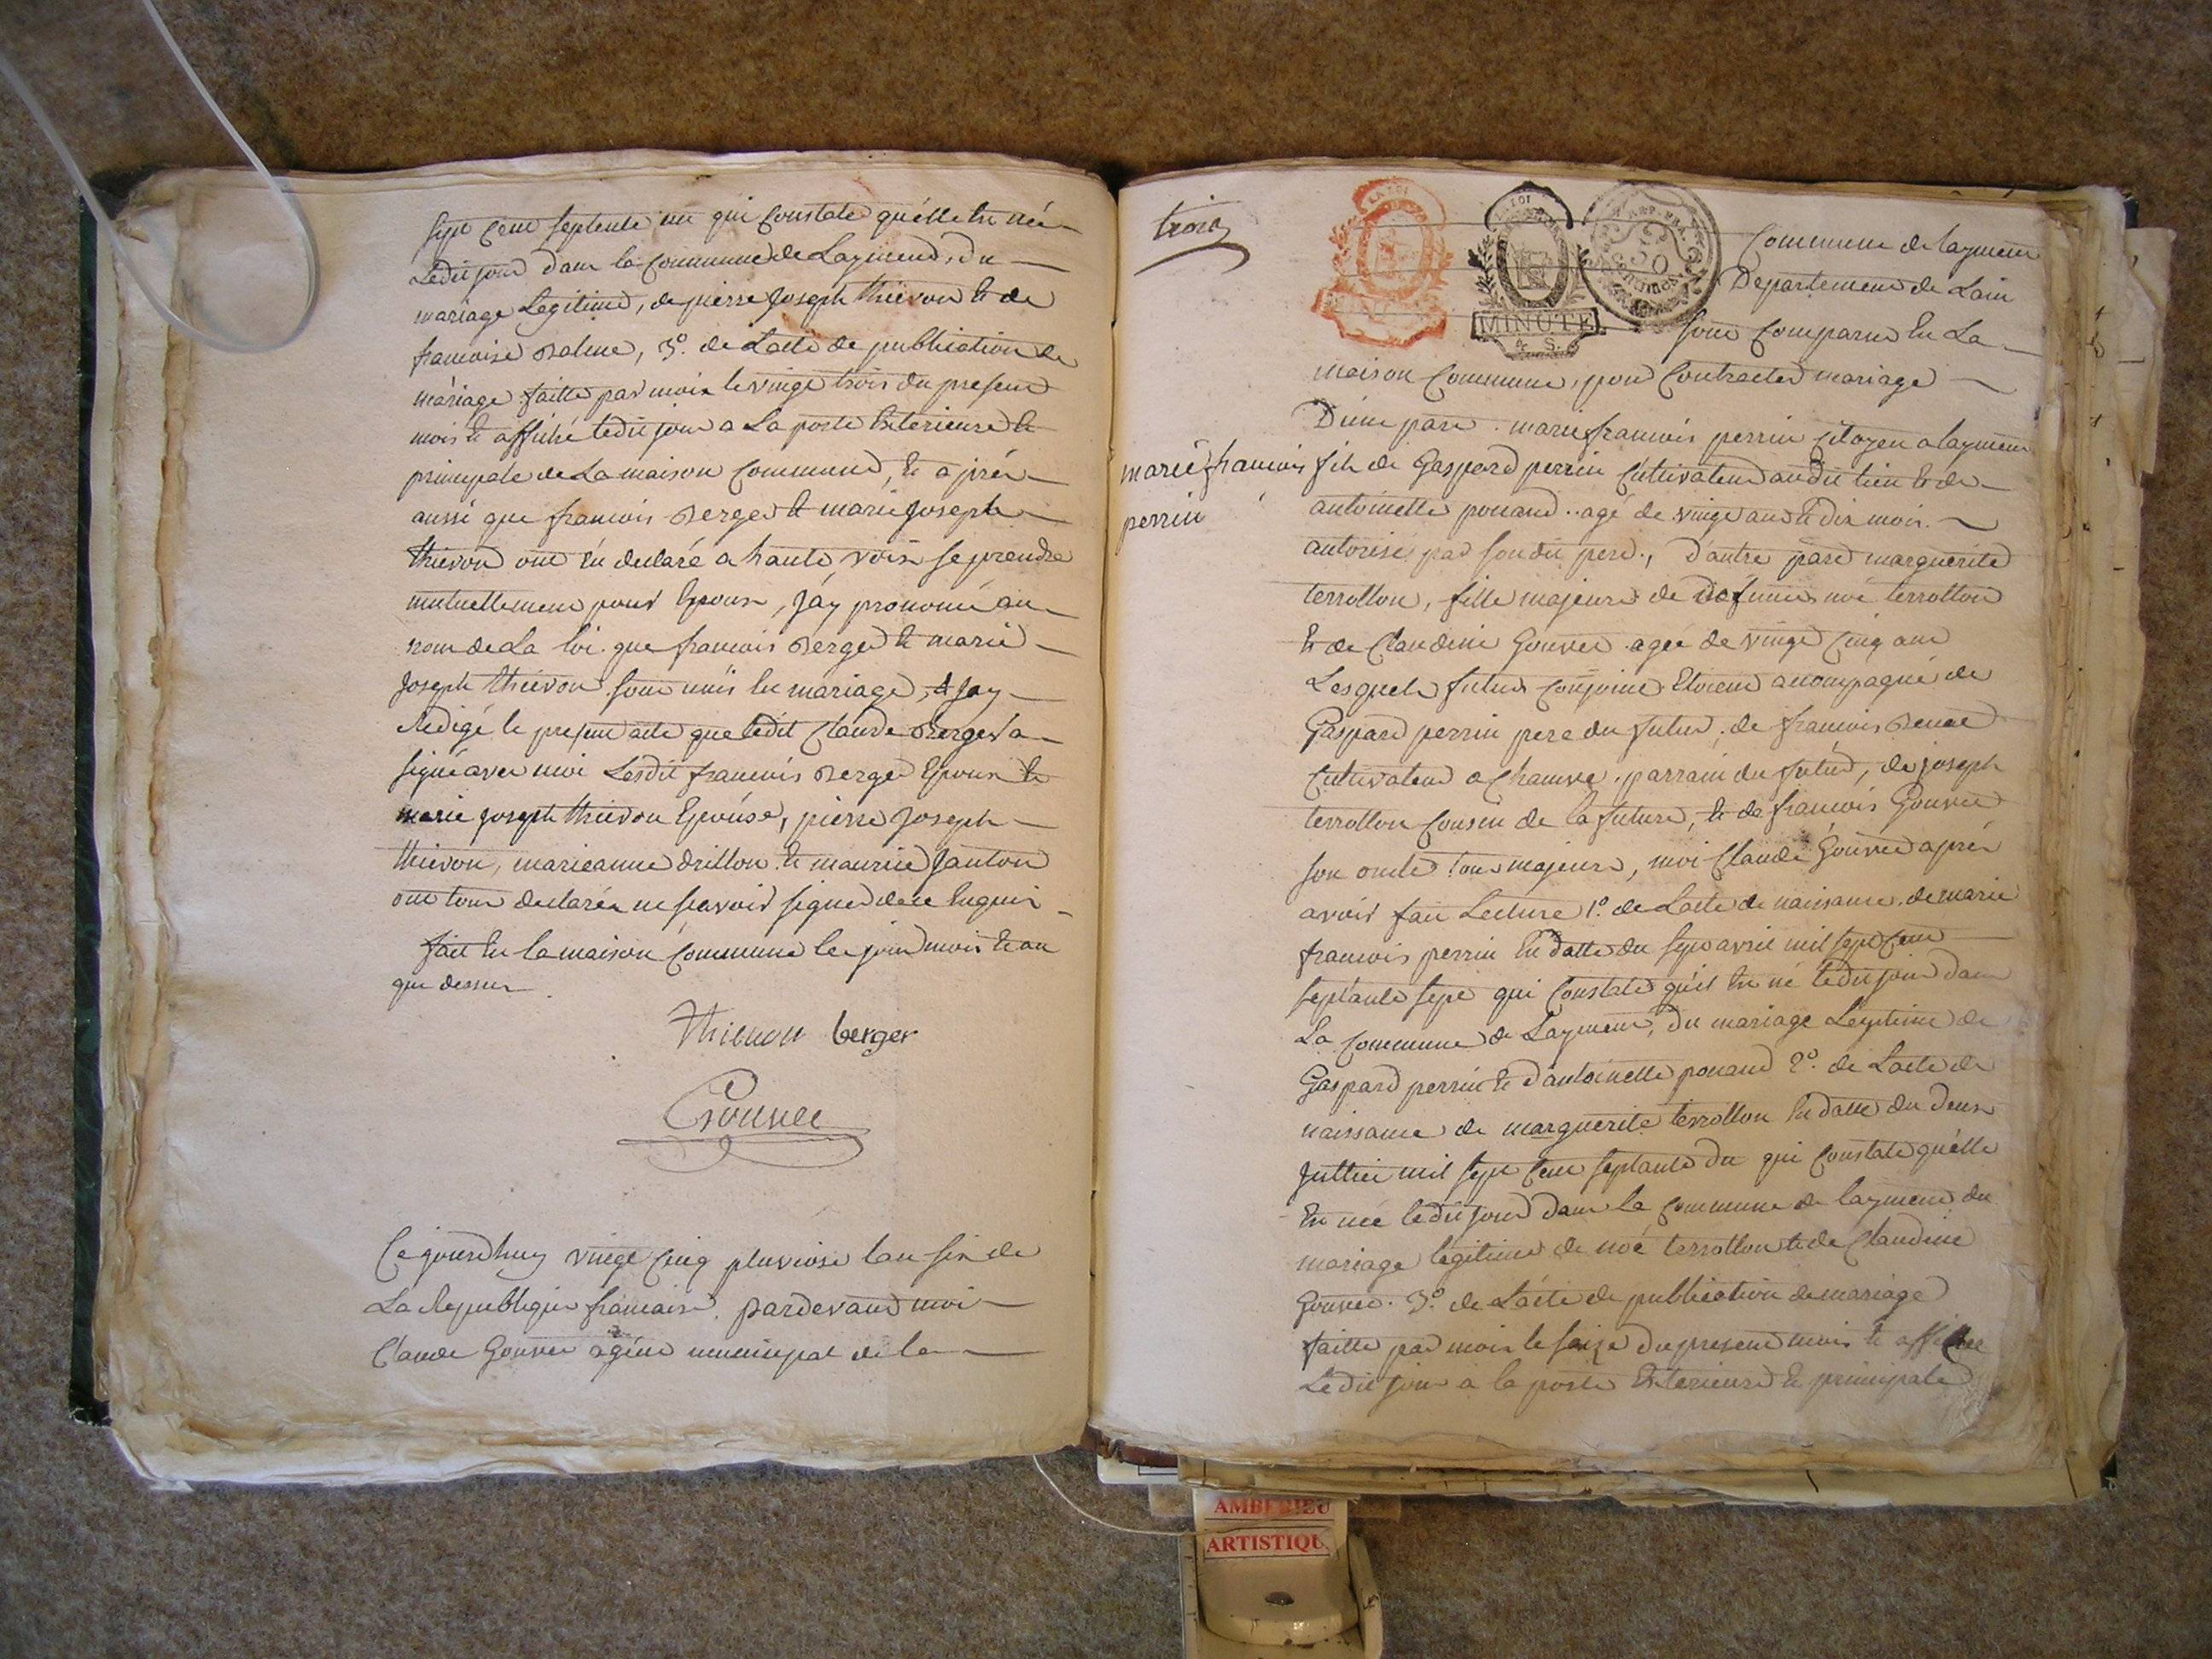 sept cent septente un qui constate qu'elle est née
Ledit jour dans la commune de Laymend, du
mariage Legitime, de pierre joseph thievon et de
francoise Balme, 3º. de Lacte de publication de
mariage faitte par moix le vingt trois du present
mois et affiché ledit jour a La porte Exterieure et
principale de La maison commune, et après
aussi que francois Berger et marie joseph
thievon ont eu declaré a haute voix se prendre
mutuellement pour Epoux, jáy prononcé au
nom de La loi que francois Berger et marie
joseph thievon sont unis en mariage, et jay
Redigé le present acte que ledit Claude Berger a
signé avec moi Lesdit francois Berger Epoux et
marie joseph thievon Epouse, pierre joseph
thievon, marieanne drillon et maurice janton
ont tous declarés ne scavoir signer de ce Enquis
fait En la maison Commune les jour mois et an
que dessus
thievon berger
Gouvee
Cejourdhuy vingt cinq pluviose lan six de
La Republique francaise pardevant moi
Claude Gouvee agent municipal de la
trois
MINUTE
50
CENTIMES
Commune de laymens
Departement de Lain
sont comparus En La
maison Commune, pour Contracter mariage
Dúne part . marie francois perrin Citoyen a laymens
marie francois
perrin
fils de Gaspard perrin cultivateur audit lieu et de
antoinette pouand .. agé de vingt ans et dix mois.
autorisé par son dit pere., d'autre part marguerite
terrollon, fille majeure de defunt noé terrollon
et de Claudine Gouvee agée de vingt cinq ans
Lesquels futurs conjoins Etoient accompagné de
Gaspard perrin pere du futur, de francois
cultivateur a , parrain du futur, de joseph
terrollon cousin de la future, et de francois Gouvee
son oncle tous majeurs, moi Claude Gouvee après
avoir fait Lecture 1º. de Lacte de naissance de marie
francois perrin En datte du sept avril mil sept cent
septante sept qui constate quíl est né ledit jour dans
La commune de Laymens, du mariage Legitime de
Gaspard perrin et dantoinette pouand 2º. de Lacte de
naissance de marguerite terrollon En datte du deux
juillet mil sept cent septante du qui constate quélle
est née ledit jour dans la commune de laymens du
mariage légitime de noé terrollon et de Claudine
Gouvee. 3º. de Lácte de publication de mariage
faitte par moix le seize du present mois et affichee
Ledit jour a la porte Exterieure et principale
AMBERIEU
ARTISTIQU